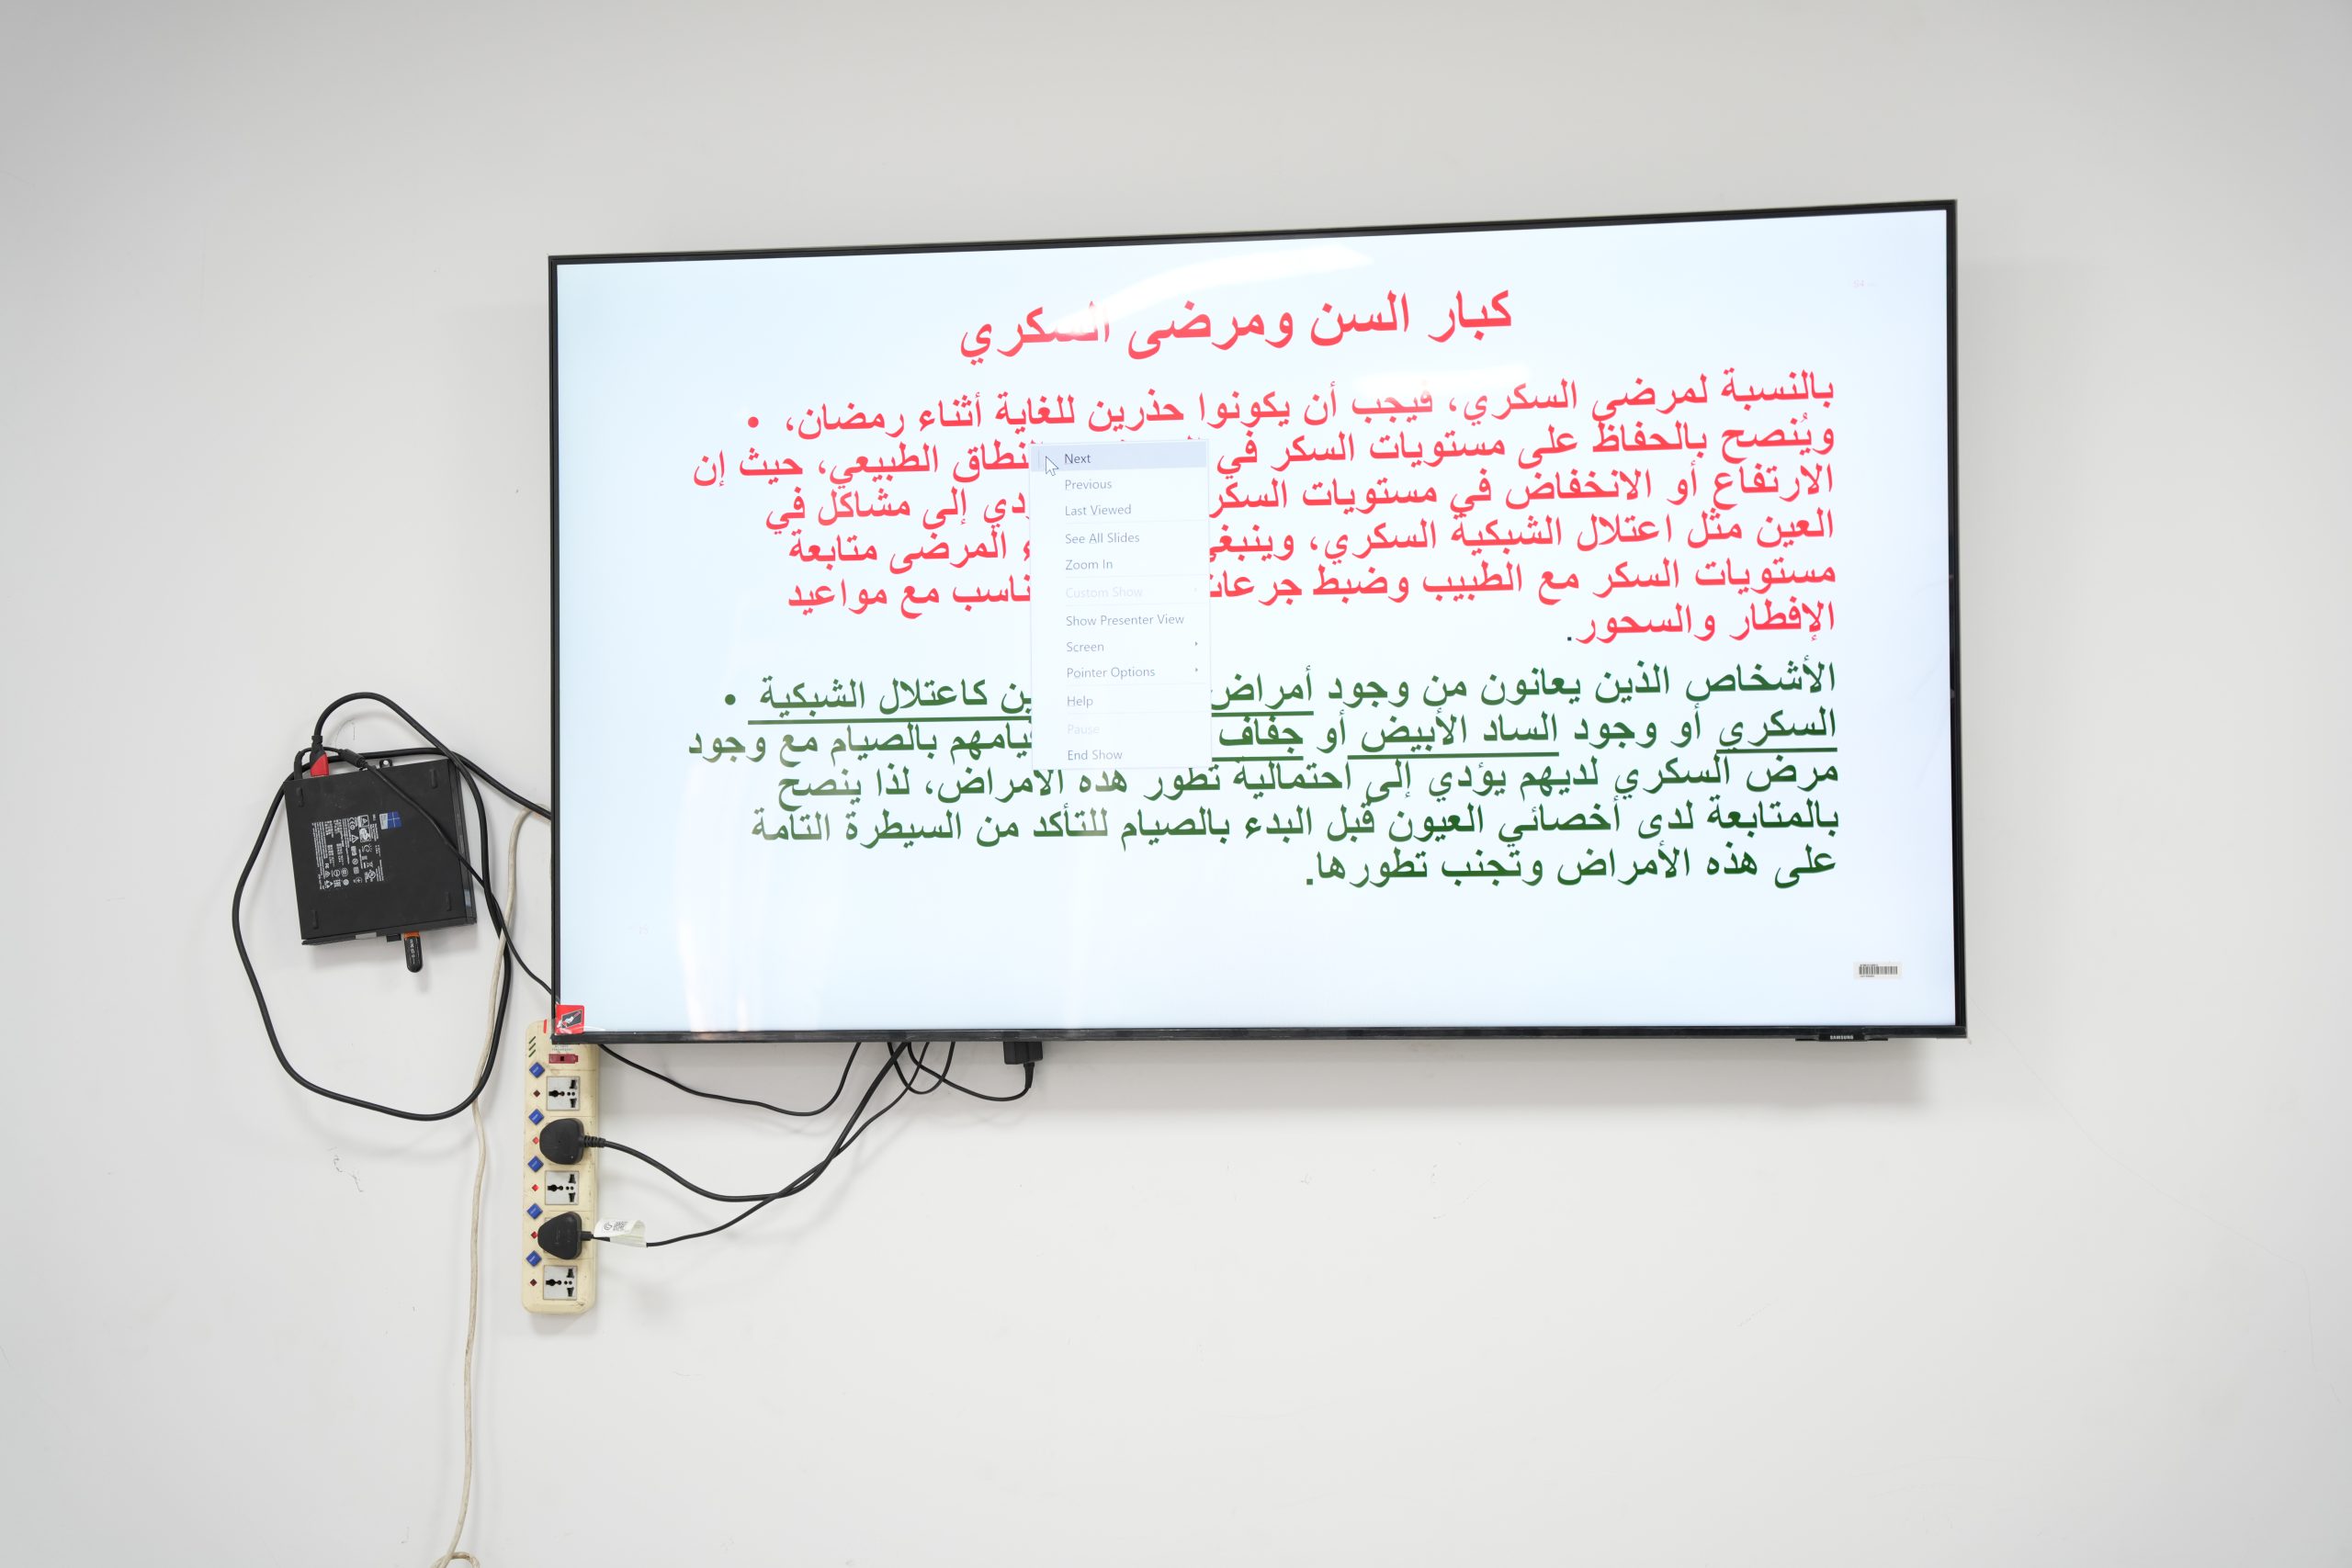 كبار السن ومرضى السكري
بالنسبة لمرضى السكري، فيجب أن يكونوا حذرين للغاية أثناء رمضان، •
ويُنصح بالحفاظ على مستويات السكر في النطاق الطبيعي، حيث إن
الارتفاع أو الانخفاض في مستويات السكر إلى مشاكل في
العين مثل اعتلال الشبكية السكري، وينبغي المرضى متابعة
مستويات السكر مع الطبيب وضبط جرعات مع مواعيد
الإفطار والسحور.
الأشخاص الذين يعانون من وجود أمراض كاعتلال الشبكية •
السكري أو وجود الساد الأبيض أو جفاف بالصيام مع وجود
مرض السكري لديهم يؤدي إلى احتمالية تطور هذه الأمراض، لذا ينصح
بالمتابعة لدى أخصائي العيون قبل البدء بالصيام للتأكد من السيطرة التامة
على هذه الأمراض وتجنب تطورها.
Next
Previous
Last Viewed
See All Slides
Zoom In
Custom Show
Show Presenter View
Screen
Pointer Options
Help
Pause
End Show
SAMSUNG